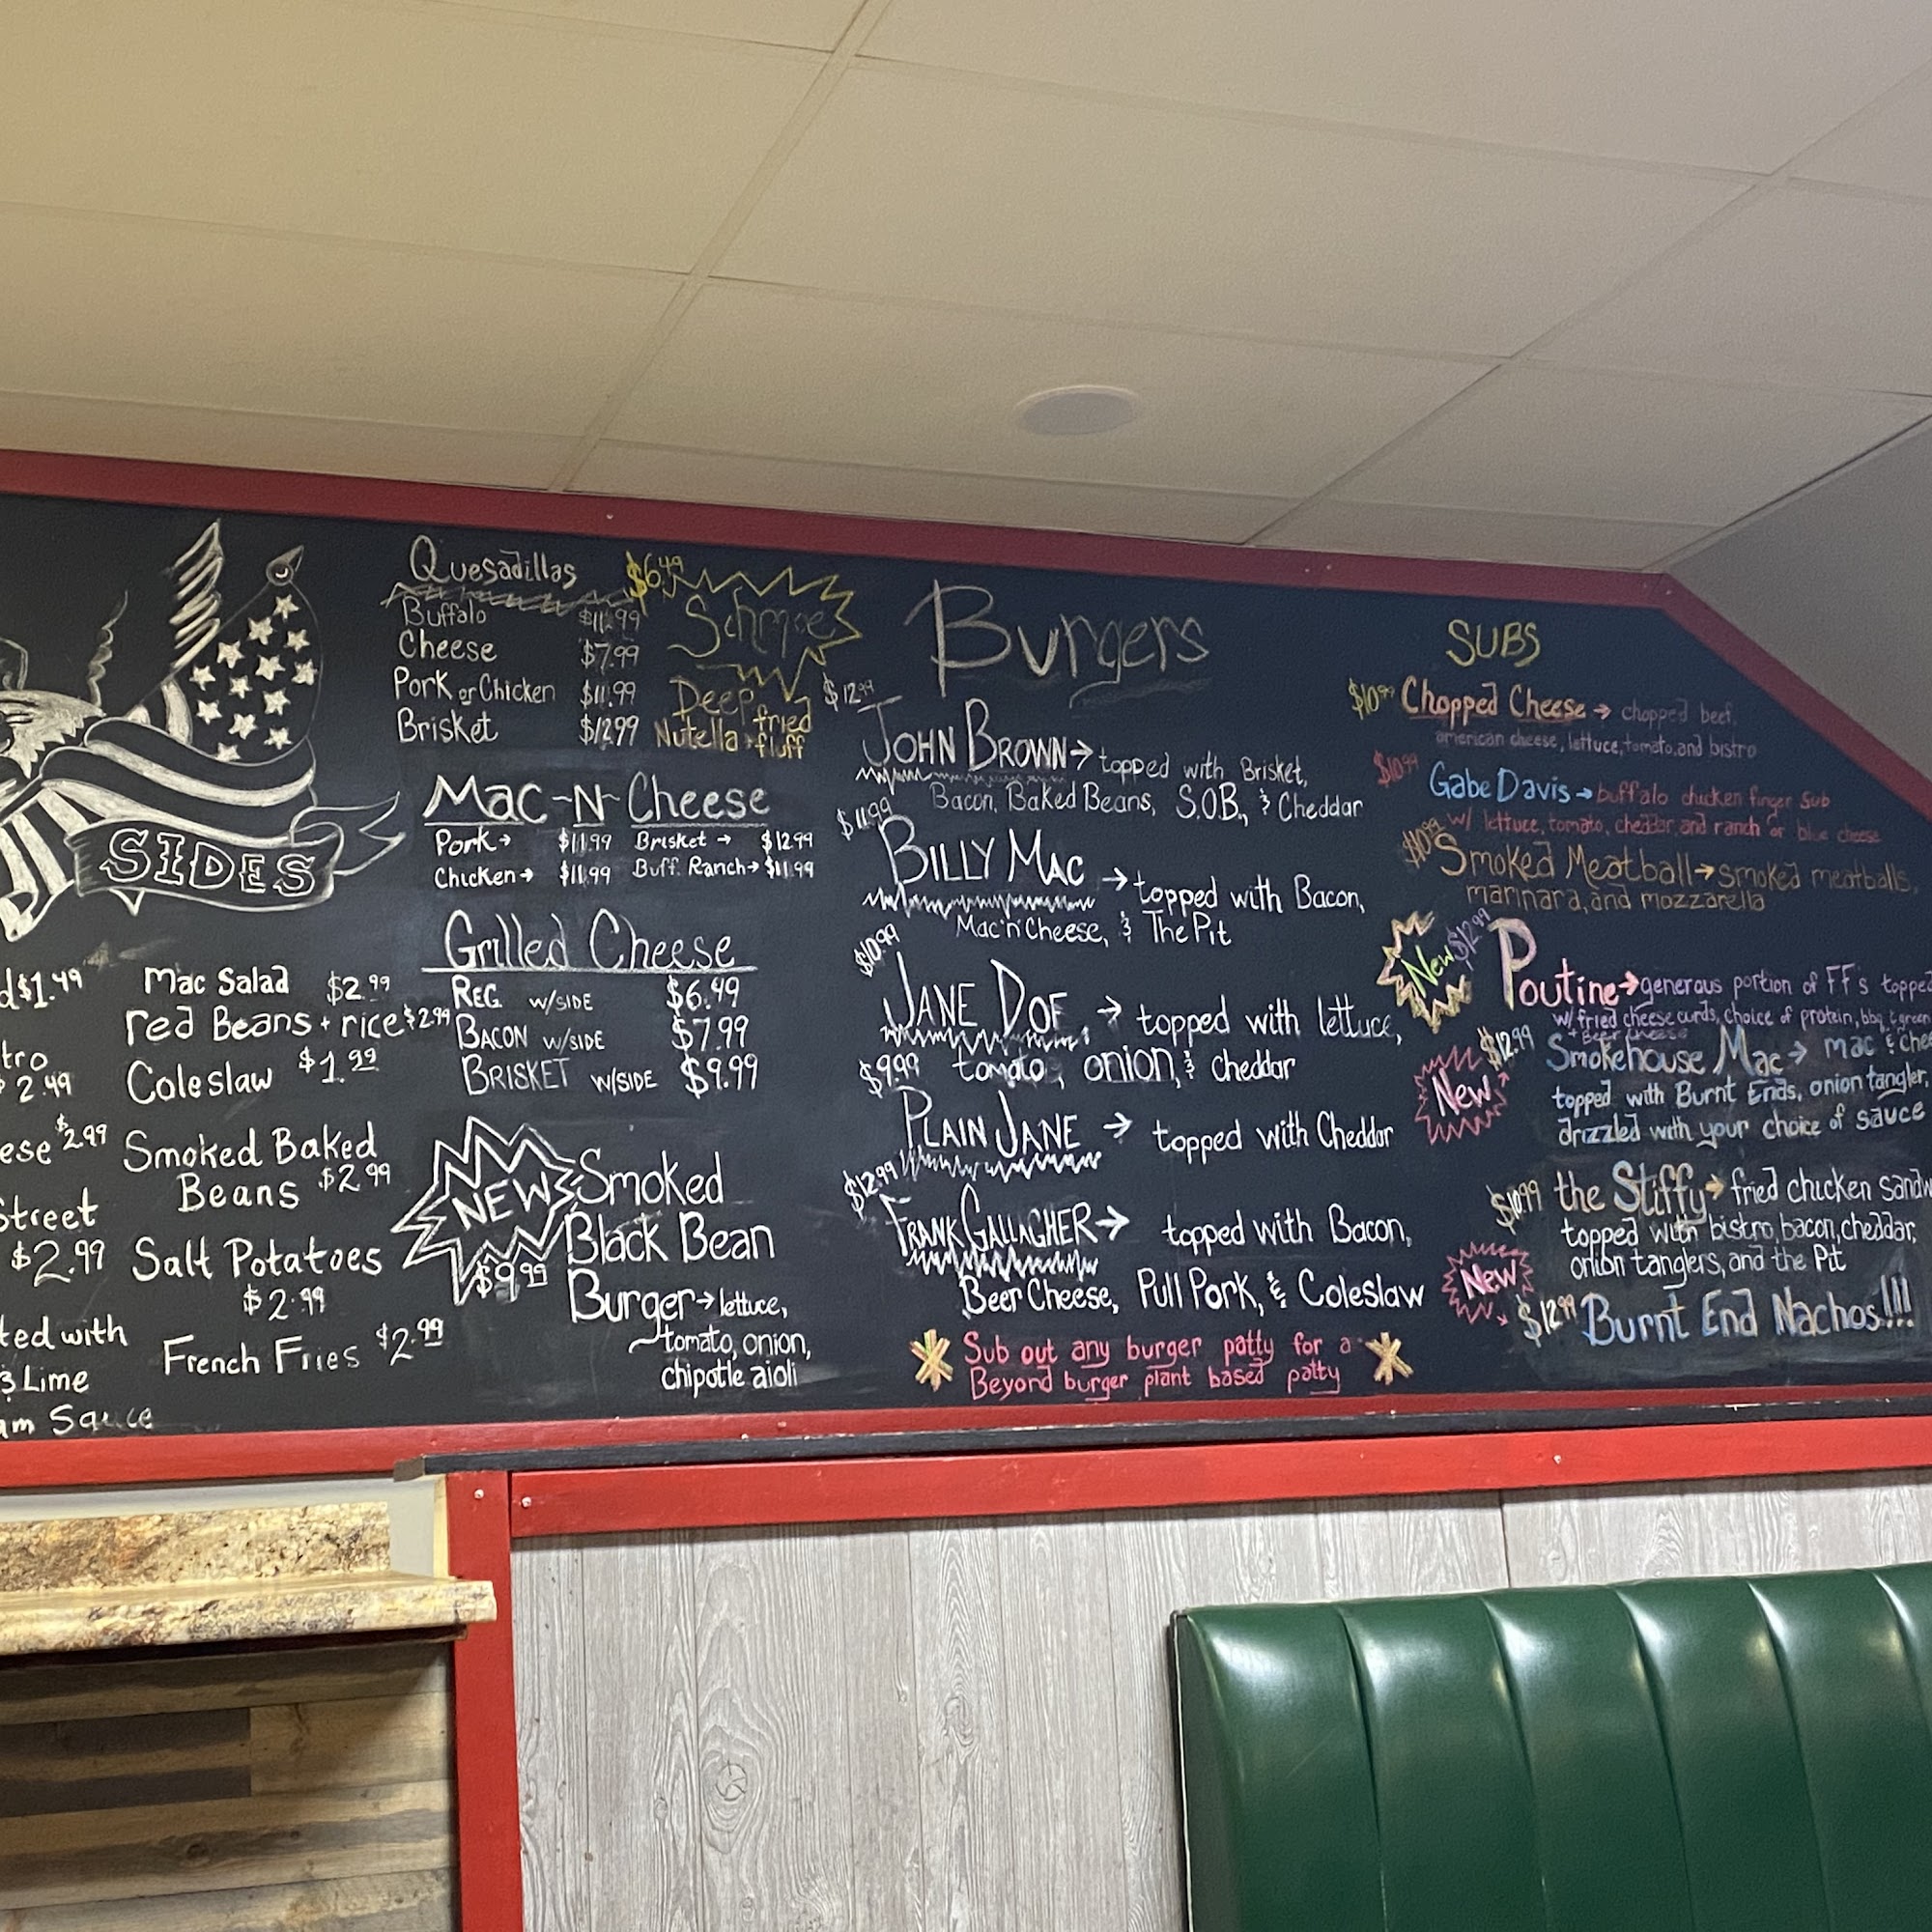 SIDES
$1.49
$2.49
$2.99
Street
$2.99
with
Lime
Sauce
Mac Salad $2.99
red Beans + rice $2.99
Coleslaw $1.99
Smoked Baked
Beans $2.99
Salt Potatoes
$2.99
French Fries $2.99
Quesadillas
Buffalo $11.99
Cheese $7.99
Pork or Chicken $11.99
Brisket $12.99
$6.49
Deep
fried
Nutella + fluff
Mac-N-Cheese
Pork → $11.99 Brisket → $12.99
Chicken → $11.99 Buff. Ranch → $11.99
Grilled Cheese
REG. W/SIDE $6.49
BACON W/SIDE $7.99
BRISKET W/SIDE $9.99
NEW Smoked
Black Bean
$9.99
Burger → lettuce,
tomato, onion,
chipotle aioli
Burgers
$12.99
JOHN BROWN → topped with Brisket,
Bacon, Baked Beans, S.O.B., & Cheddar
$11.99
BILLY MAC → topped with Bacon,
Mac'n'Cheese, & The Pit
$10.99
JANE DOE → topped with lettuce,
tomato, onion, & cheddar
$9.99
PLAIN JANE → topped with Cheddar
$12.99
FRANK GALLAGHER → topped with Bacon,
Beer Cheese, Pull Pork, & Coleslaw
Sub out any burger patty for a
Beyond burger plant based patty
SUBS
$10.99 Chopped Cheese → chopped beef,
american cheese, lettuce, tomato, and bistro
$10.99 Gabe Davis → buffalo chicken finger sub
w/ lettuce, tomato, cheddar, and ranch or blue cheese
$10.99 Smoked Meatball → smoked meatballs,
marinara, and mozzarella
New $12.99 Poutine → generous portion of FF's topped
w/ fried cheese curds, choice of protein, bbq, & green
+ Beer cheese
New $12.99 Smokehouse Mac → mac &
topped with Burnt Ends, onion tangler,
drizzled with your choice of sauce
$10.99 the Stiffy → fried chicken
topped with bistro, bacon, cheddar,
onion tanglers, and the Pit
New $12.99 Burnt End Nachos!!!